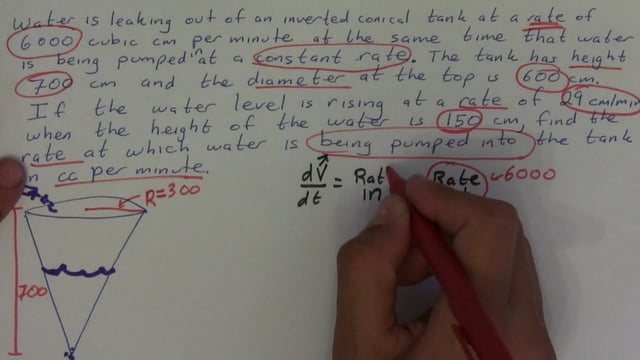 Water is leaking out of an inverted conical tank at a rate of
6000 cubic cm per minute at the same time that water
is being pumped in at a constant rate. The tank has height
700 cm and the diameter at the top is 600 cm.
If the water level is rising at a rate of 29 cm/min
when the height of the water is 150 cm, find the
rate at which water is being pumped into the tank
in cc per minute.
dV/dt = Rat in Rate 6000
R=300
700